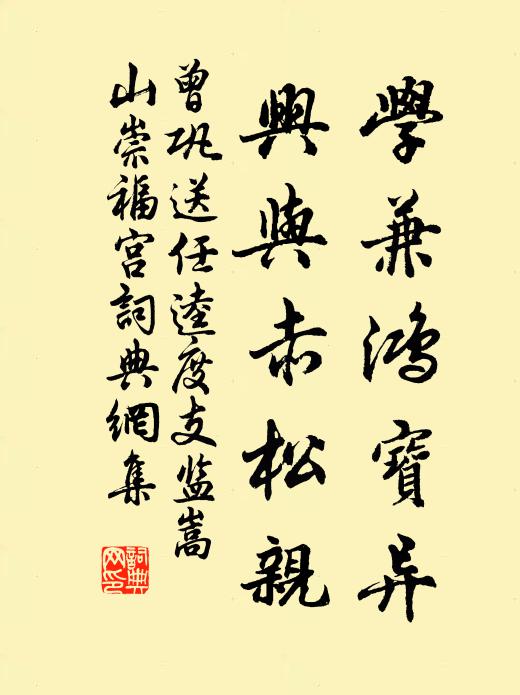 學兼鴻寶异
興與赤松親
曾巩送任逵度支监嵩
山崇福宫詞典網集
詞典网印